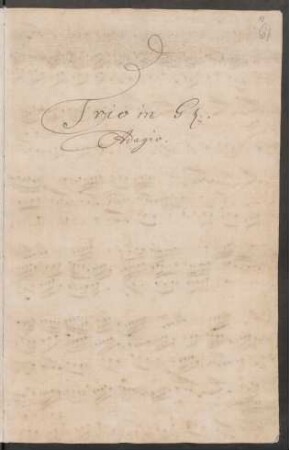 Trio in G♮.
Adagio.